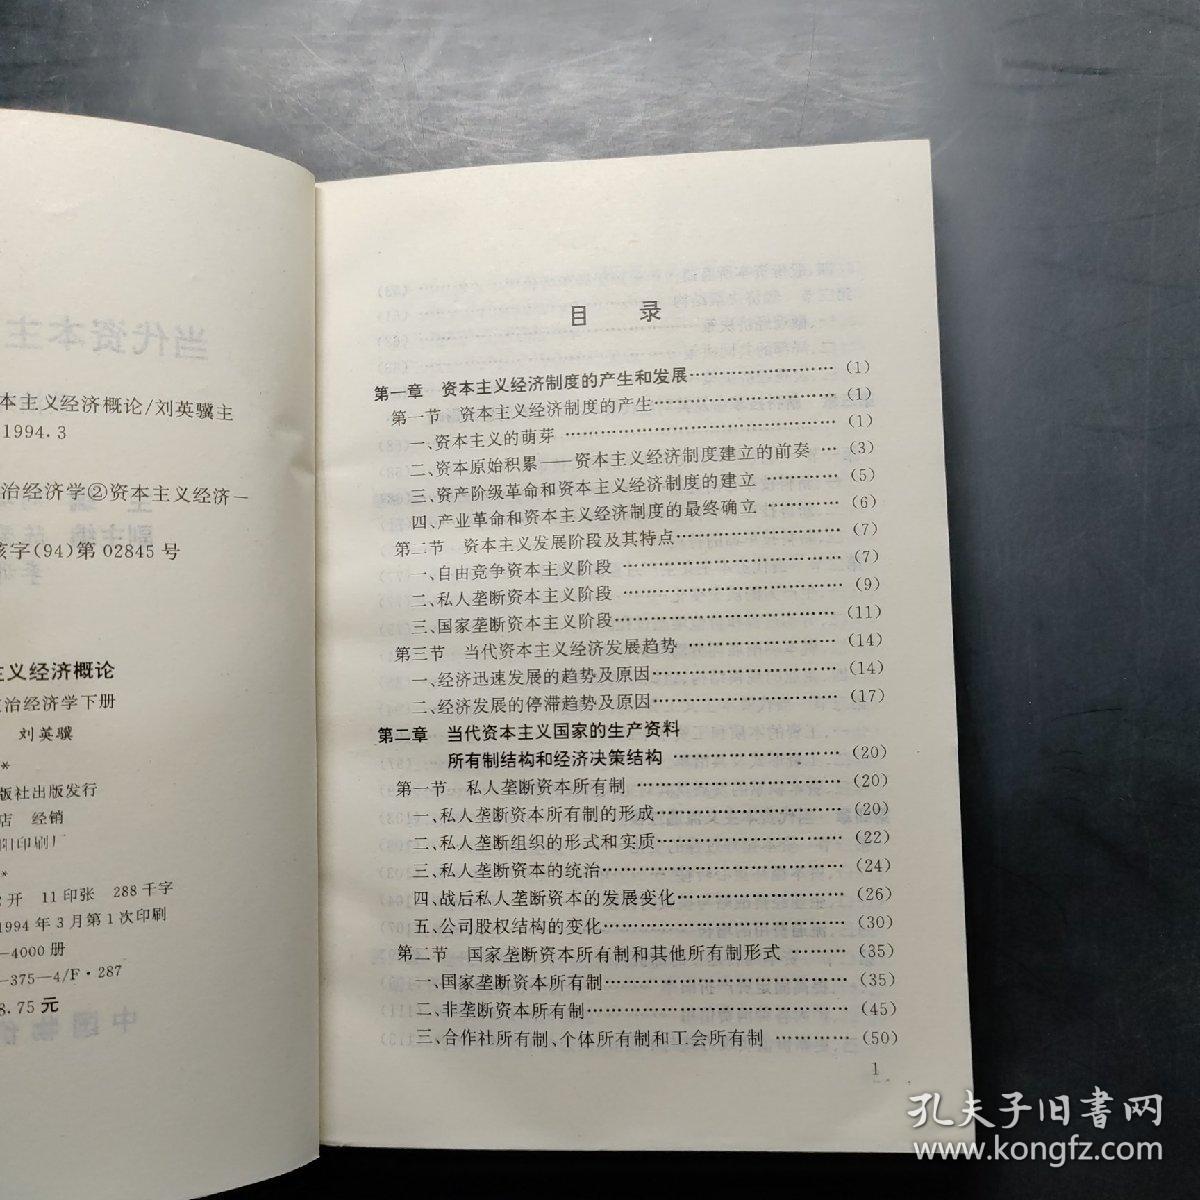 本主义经济概论/刘英骥主
1994.3
治经济学②资本主义经济—
字(94)第 02845 号
主义经济概论
治经济学下册
刘英骥
*
版社出版发行
店 经销
阳印刷厂
*
开 11印张 288千字
1994年3月第1次印刷
—4000册
—375—4/F·287
8.75元
目 录
第一章 资本主义经济制度的产生和发展……………………(1)
第一节 资本主义经济制度的产生……………………(1)
一、资本主义的萌芽……………………(1)
二、资本原始积累——资本主义经济制度建立的前奏…(3)
三、资产阶级革命和资本主义经济制度的建立…………(5)
四、产业革命和资本主义经济制度的最终确立…………(6)
第二节 资本主义发展阶段及其特点……………………(7)
一、自由竞争资本主义阶段……………………(7)
二、私人垄断资本主义阶段……………………(9)
三、国家垄断资本主义阶段……………………(11)
第三节 当代资本主义经济发展趋势……………………(14)
一、经济迅速发展的趋势及原因……………………(14)
二、经济发展的停滞趋势及原因……………………(17)
第二章 当代资本主义国家的生产资料
所有制结构和经济决策结构……………………(20)
第一节 私人垄断资本所有制……………………(20)
一、私人垄断资本所有制的形成……………………(20)
二、私人垄断组织的形式和实质……………………(22)
三、私人垄断资本的统治……………………(24)
四、战后私人垄断资本的发展变化……………………(26)
五、公司股权结构的变化……………………(30)
第二节 国家垄断资本所有制和其他所有制形式………(35)
一、国家垄断资本所有制……………………(35)
二、非垄断资本所有制……………………(45)
三、合作社所有制、个体所有制和工会所有制…………(50)
1
孔夫子旧书网
www.kongfz.com